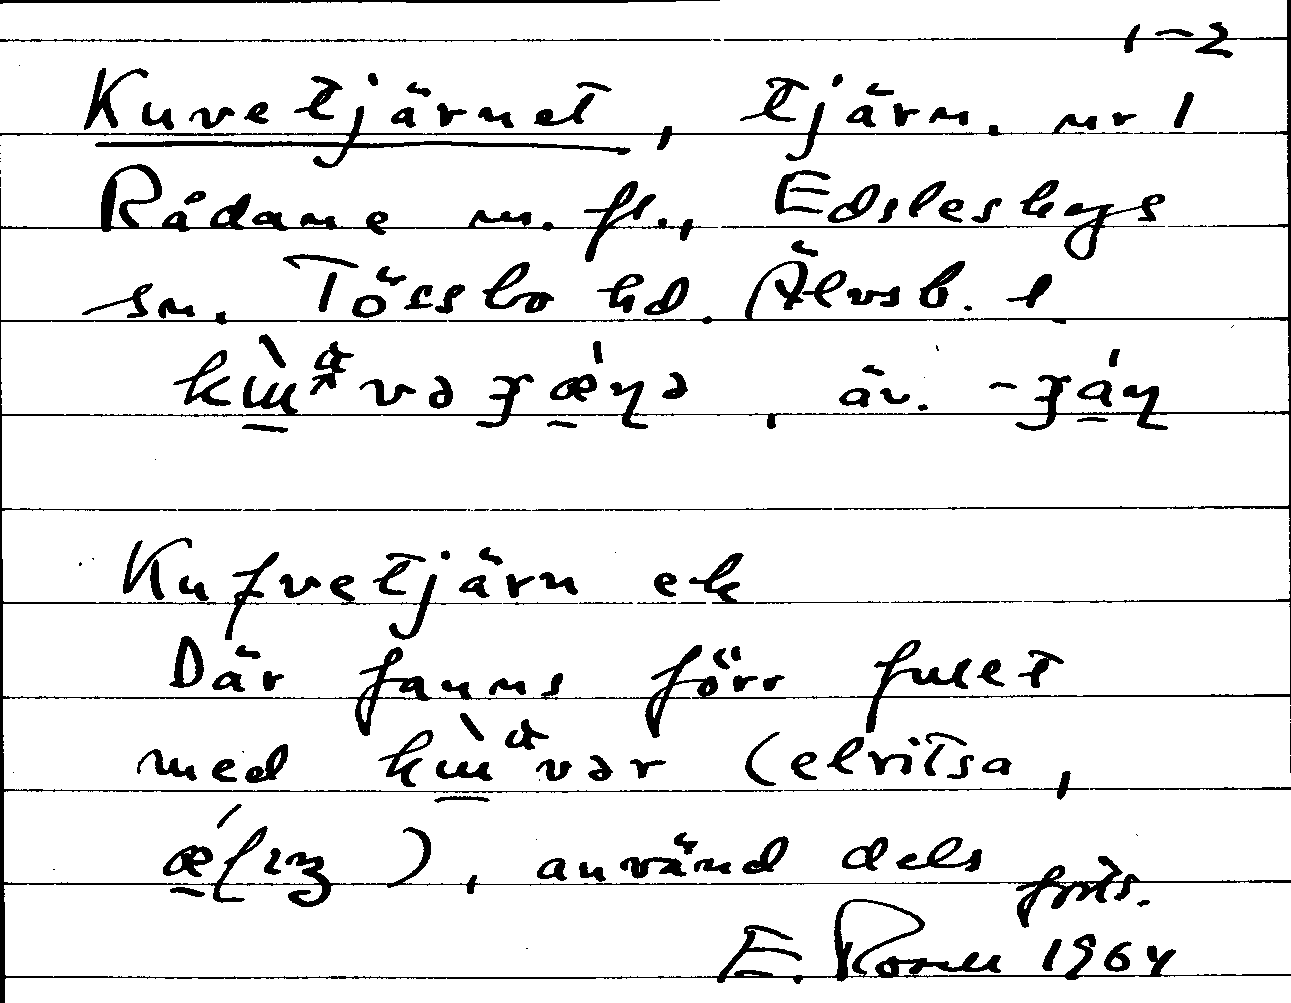 1-2
Kuvetjärnet, tjärn. nr 1
Rådane m. fl., Edsleskogs
sn. Tössbo hd. Älvsb. l
, äv.
Kufvetjärn ek
Där fanns förr fullt
med (elritsa,
), använd dels forts.
E. Rosell 1964